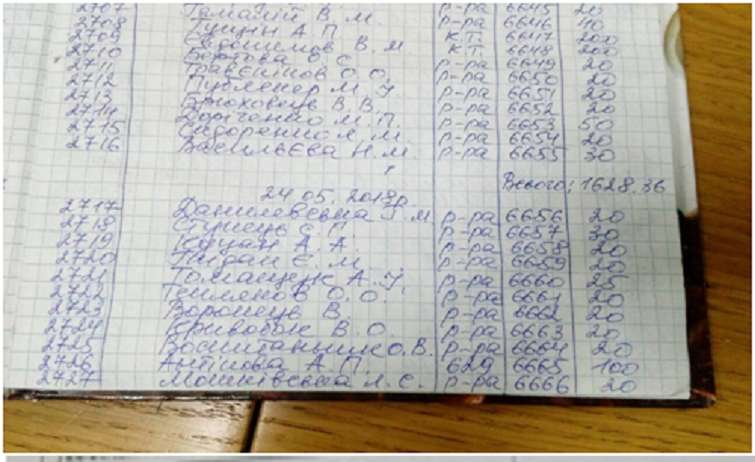 2707 Томалій В. М. р-ра 6645 20
2708 А. П. р-ра 6646 40
2709 Євдокимов В. М к.т. 6647 200
2710 Бортова О. С к.т. 6648 200
2711 О. О. р-ра 6649 20
2712 М. У р-ра 6650 20
2713 Брюховець В. В. р-ра 6651 20
2714 М. П. р-ра 6652 20
2715 Сидоренко Л. М. р-ра 6653 50
2716 Васильєва Н. М. р-ра 6654 20
р-ра 6655 30
Всього: 1628.36
24.05.2018р.
2717 Данилевська Г. М р-ра 6656 20
2718 Ступець Є. П. р-ра 6657 30
2719 Куцин А. А. р-ра 6658 20
2720 Є. М. р-ра 6659 20
2721 Томащук А. У. р-ра 6660 25
2722 О. О. р-ра 6661 20
2723 Воронець В. р-ра 6662 20
2724 Кривобок В. О. р-ра 6663 20
2725 Воспитанник О. В. р-ра 6664 20
2726 Антіпова А. П. 629 6665 100
2727 Мошківська Л. Є. р-ра 6666 20